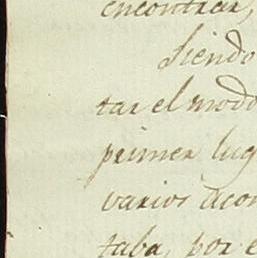 encontrar,
Siendo
tar el modo
primer lug
varios acon
taba, por e